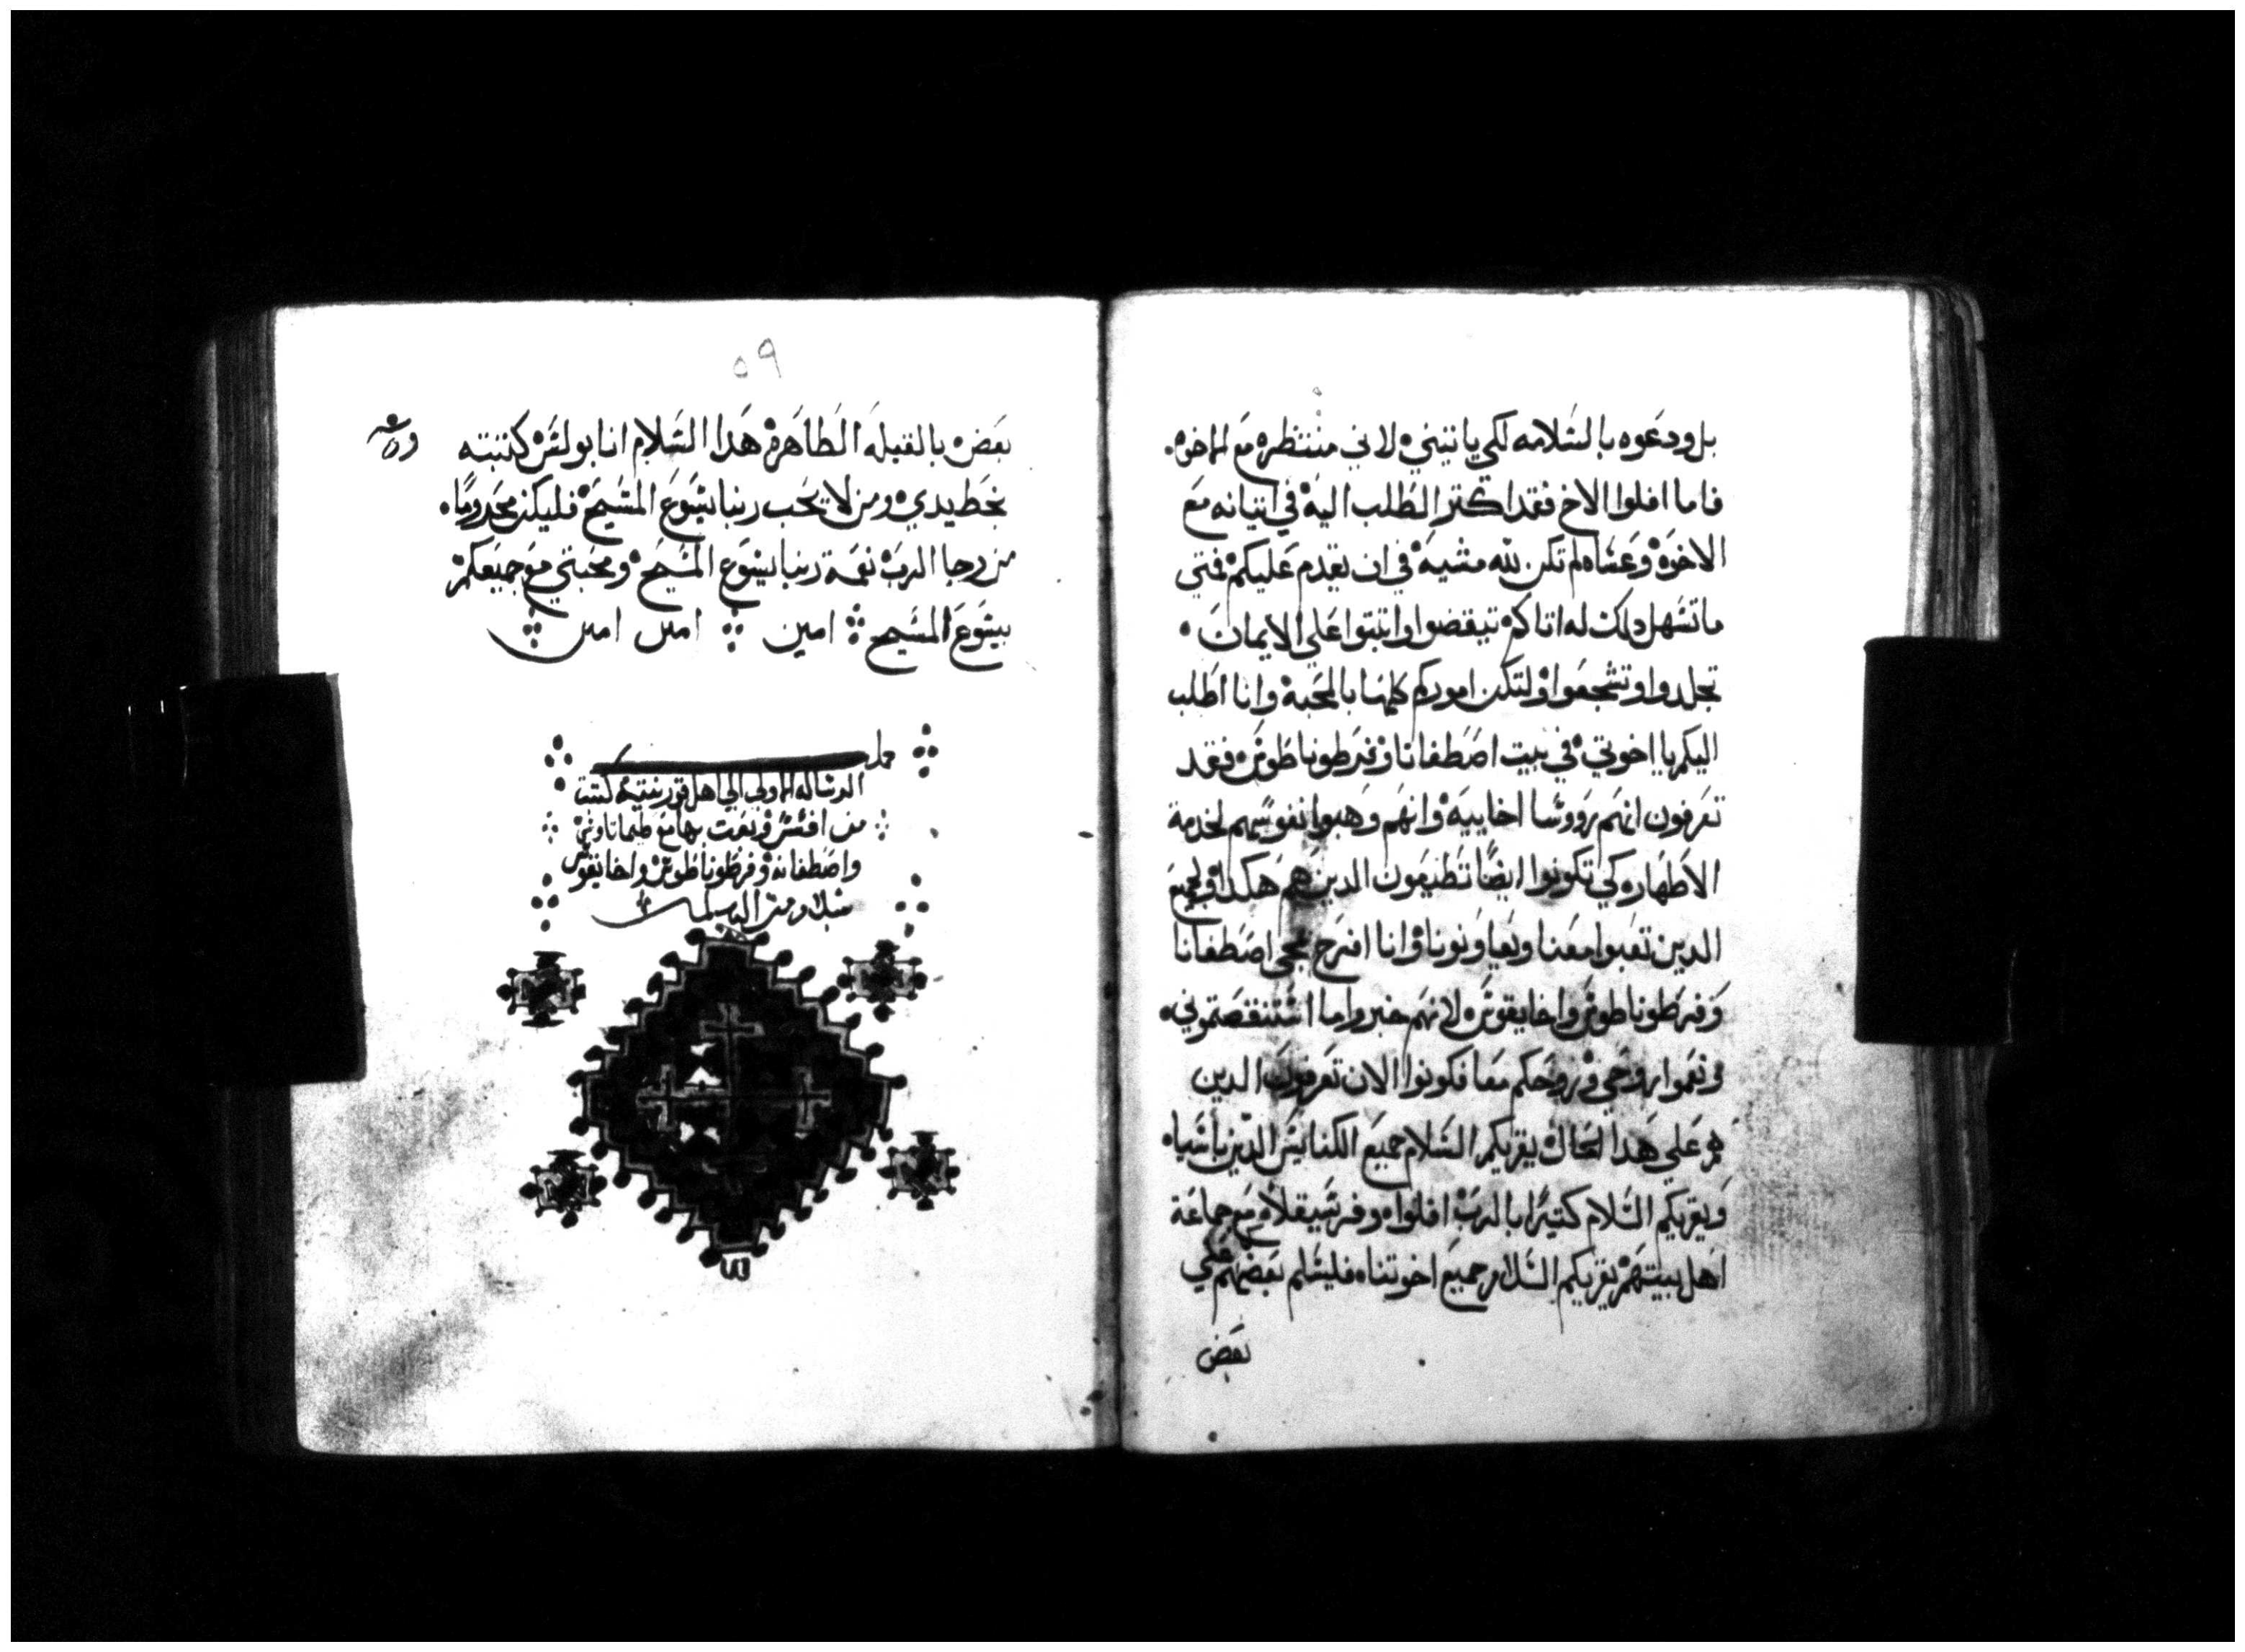 بل ودعوه بالسلامه لكي ياتيني لاني منتظره مع الاخوه
فاما افلوا الاخ فقد اكتر الطلب اليه في اتيانه مع
الاخوه وعساه لم تكن لله مشيه في ان يقدم عليكم فمتي
ما تسهل دلك له اتاكم تيقضوا واتبتوا علي الايمان
تجلدوا وتشجعوا ولتكن اموركم كلها بالمحبه وانا اطلب
اليكم يا اخوتي في بيت اصطفانا وفرطوناطوس فقد
تعرفون انهم رووسا اخاييه وانهم وهبوا نفوسهم لخدمة
الاطهار كي تكونوا ايضا تطيعون الدين هم هكدا ولجميع
الدين تعبوا معنا ويعاونونا وانا افرح بمجي اصطفانا
وفرطوناطوس واخايقوس لانهم جبروا ما استنقصتموني
ونعموا روحي وروحكم معا فكونوا الان تعرفون الدين
هم علي هدا الحال يقريكم السلام جميع الكنايس الدين باسيا
ويقريكم السلام كتيرا بالرب افلوا وفرسيقلا مع جماعة
اهل بيتهم يقريكم السلام جميع اخوتنا فليسلم بعضهم علي
بعض
٥٩
بعض بالقبله الطاهره هدا السلام انا بولس كتبته
بخط يدي ومن لا يحب ربنا يسوع المسيح فليكن محروما
من رجا الرب نعمة ربنا يسوع المسيح ومحبتي مع جميعكم
بيسوع المسيح امين امين امين
الرساله الاولي الي اهل قورنتيه كتبت
من افسس وبعت بها مع طيماتاوس
واصطفانه وفرطوناطوس واخايقوس
بسلام من الرب